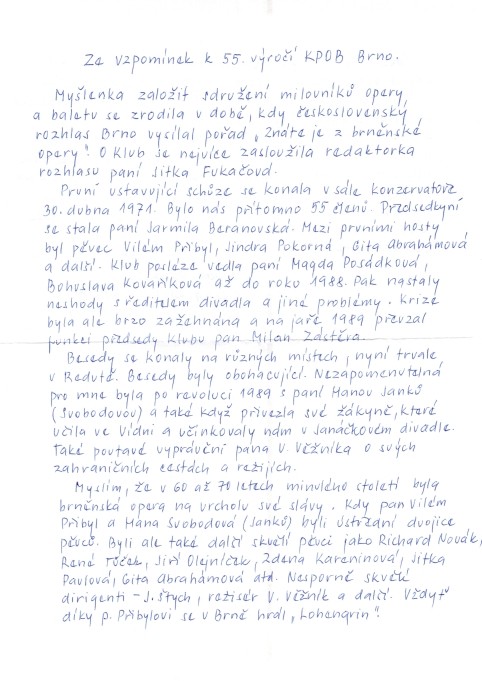 Ze vzpomínek k 55. výročí KPOB Brno.
Myšlenka založit sdružení milovníků opery
a baletu se zrodila v době, kdy československý
rozhlas Brno vysílal pořad „Znáte je z brněnské
opery“. O Klub se nejvíce zasloužila redaktorka
rozhlasu paní Jitka Fukačová.
První ustavující schůze se konala v sále konzervatoře
30. dubna 1971. Bylo nás přítomno 55 členů. Předsedkyní
se stala paní Jarmila Beránovská. Mezi prvními hosty
byl pěvec Vilém Přibyl, Jindra Pokorná, Gita Abrahámová
a další. Klub posléze vedla paní Magda Posádková,
Bohuslava Kovaříková až do roku 1988. Pak nastaly
neshody s ředitelem divadla a jiné problémy. Krize
byla ale brzo zažehnána a na jaře 1989 převzal
funkci předsedy Klubu pan Milan Zástěra.
Besedy se konaly na různých místech, nyní trvale
v Redutě. Besedy byly obohacující. Nezapomenutelná
pro mne byla po revoluci 1989 s paní Hanou Janků
(Svobodovou) a také když přivezla své žákyně, které
učila ve Vídni a účinkovaly nám v Janáčkovém divadle.
Také poutavé vyprávění pana V. Věžníka o svých
zahraničních cestách a režijích.
Myslím, že v 60 až 70 letech minulého století byla
brněnská opera na vrcholu své slávy. Kdy pan Vilém
Přibyl a Hana Svobodová (Janků) byli ústřední dvojice
pěvců. Byli ale také další skvělí pěvci jako Richard Novák,
René Tuček, Jiří Olejníček, Zdena Kareninová, Jitka
Pavlová, Gita Abrahámová atd. Nesporně skvělé
dirigenti – J. Štych, režisér V. Věžník a další. Vždyť
díky p. Přibylovi se v Brně hrál „Lohengrin“.